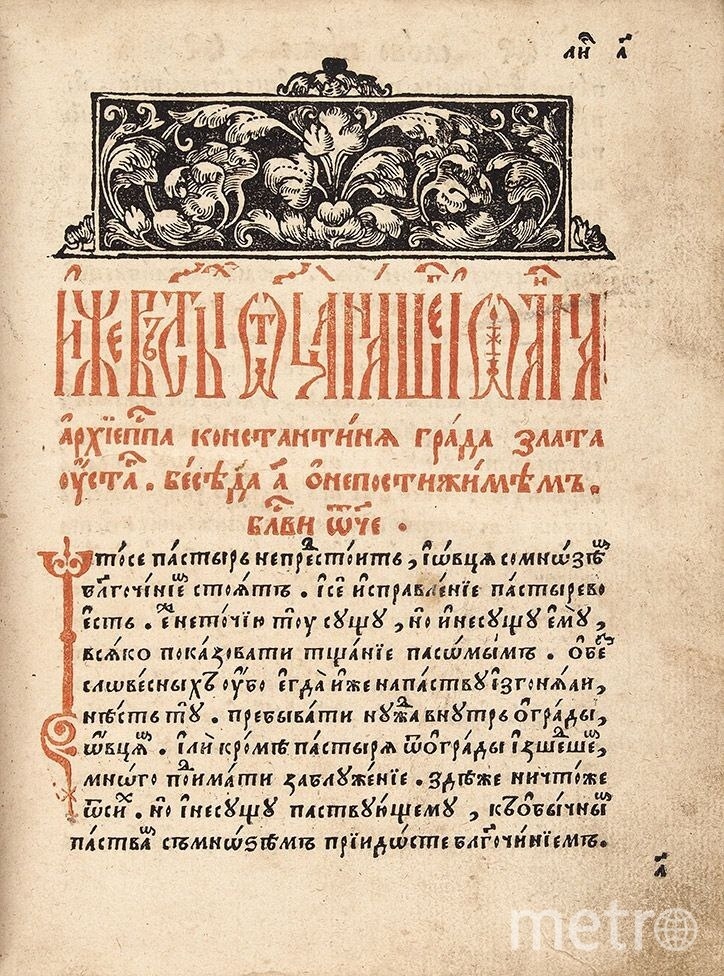 ли҃ а҃
И҆же въ ст҃ы́хъ ѻ҆тца̀ на́шего і҆ѡа́нна
а҆рхїепⷭ҇па констаnти́ня гра́да злата
оу҆стаⷢ҇. бесѣ́да а҃ ѡ҆непостижи́мѣмъ.
бл҃ви ѿче .
І҆ тосе па́стырь непреⷣстоитъ, і҆ѻ҆вця сомно́зѣⷨ
бл҃гочи́нїеⷨ стоѧ́тъ. і҆се́ и҆справле́нїе па́стырево
е҆сть. е҆ⷤ неточїю тоу́ сущу, но̀ и҆несущу е҆му̀,
всяко пока́зовати тща́нїе пасѡ́мымъ. ѻ҆беⷥ
сло́весныхъ оу҆́бо е҆гда̀ и҆́же напа́ству и҆зго́няли,
нѣ́сть тꙋ̀. пребыва́ти ну́жⷣа внутрь ѻ҆гра́ды,
ѻ҆вця́мⷨ. и҆лѝ кро́мѣ па́стыря ѿѻ҆гра́ды и҆зше́шеⷨ,
мно́го поⷣима́ти заблуже́нїе. здѣ́же ничто́же
ѿсиⷯ. но̀ и҆несущу па́ствующему, къ ѻ҆бы́чныⷨ
па́стваⷨ съмно́ѕѣмъ прїидо́сте бл҃гочи́нїемъ.
а҃
metro